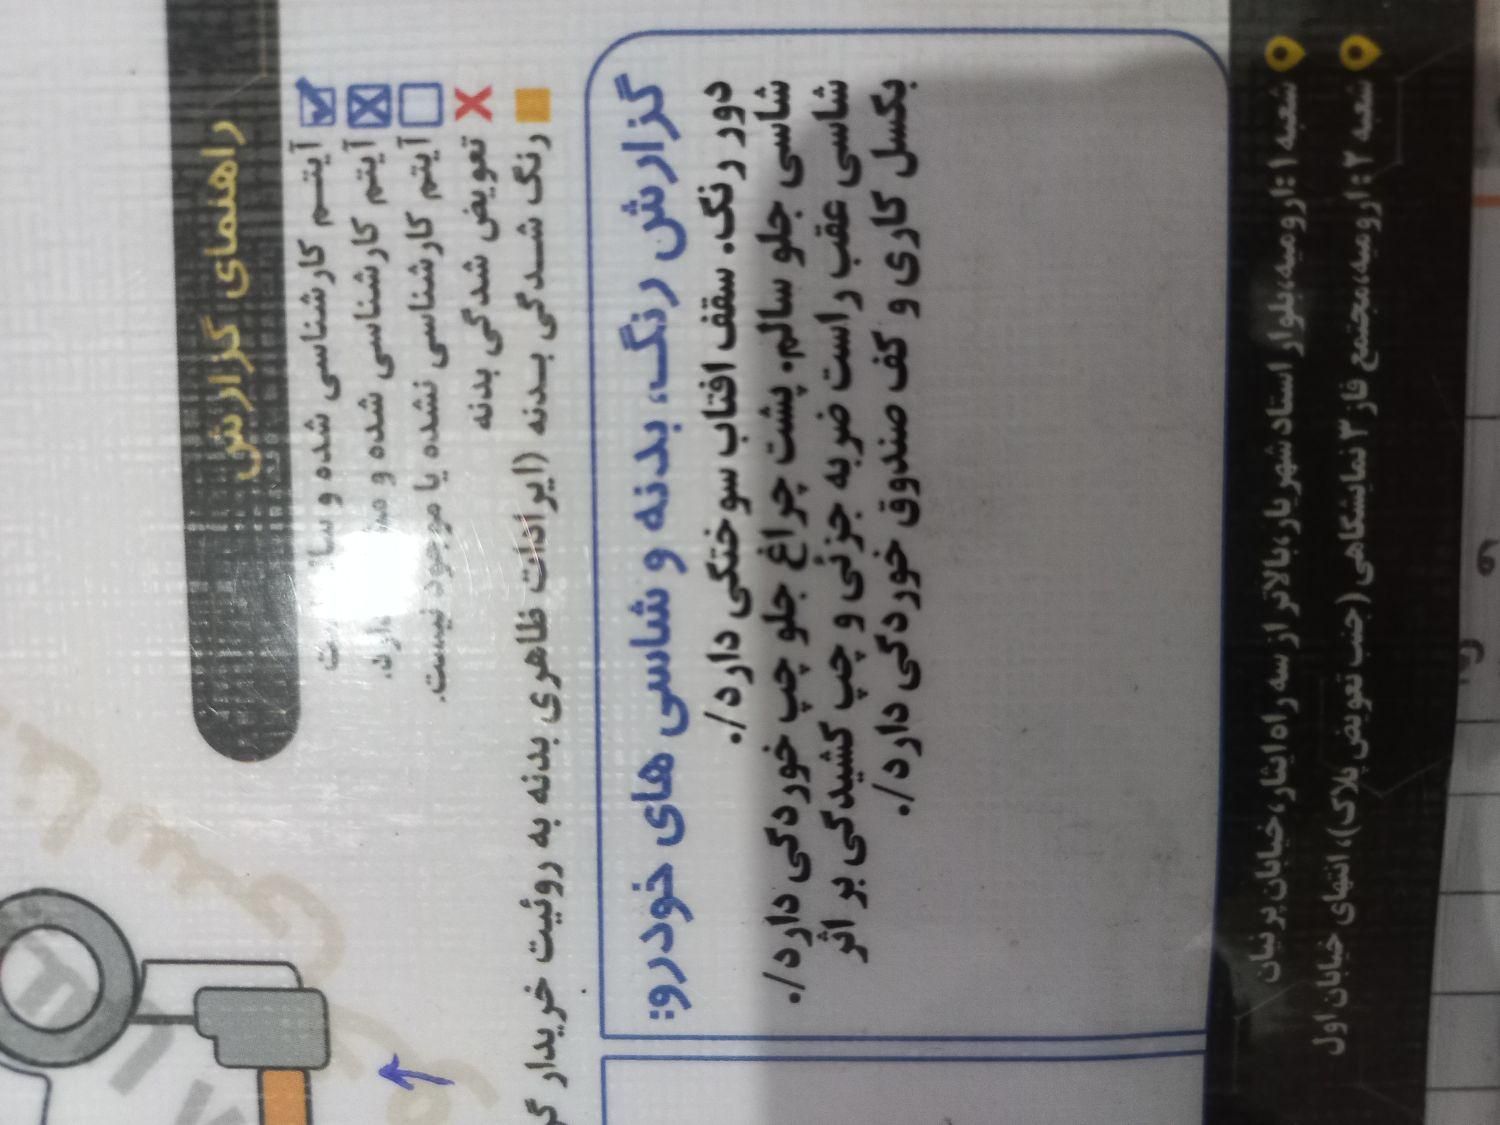 راهنمای گزارش
آیتم کارشناسی شده و
آیتم کارشناسی شده و
آیتم کارشناسی نشده یا موجود نیست.
تعویض شدگی بدنه
رنگ شدگی بدنه (ایرادات ظاهری بدنه به روئیت خریدار
گزارش رنگ، بدنه و شاسی های خودرو:
دور رنگ. سقف افتاب سوختگی دارد/.
شاسی جلو سالم. پشت چراغ جلو چپ خوردگی دارد/.
شاسی عقب راست ضربه جزئی و چپ کشیدگی بر اثر
بکسل کاری و کف صندوق خوردگی دارد/.
شعبه ۱: ارومیه، بلوار استاد شهریار، بالاتر از سه راه ایثار، خیابان پرنیان
شعبه ۲: ارومیه، مجتمع فاز ۳ نمایشگاهی (جنب تعویض پلاک)، انتهای خیابان اول